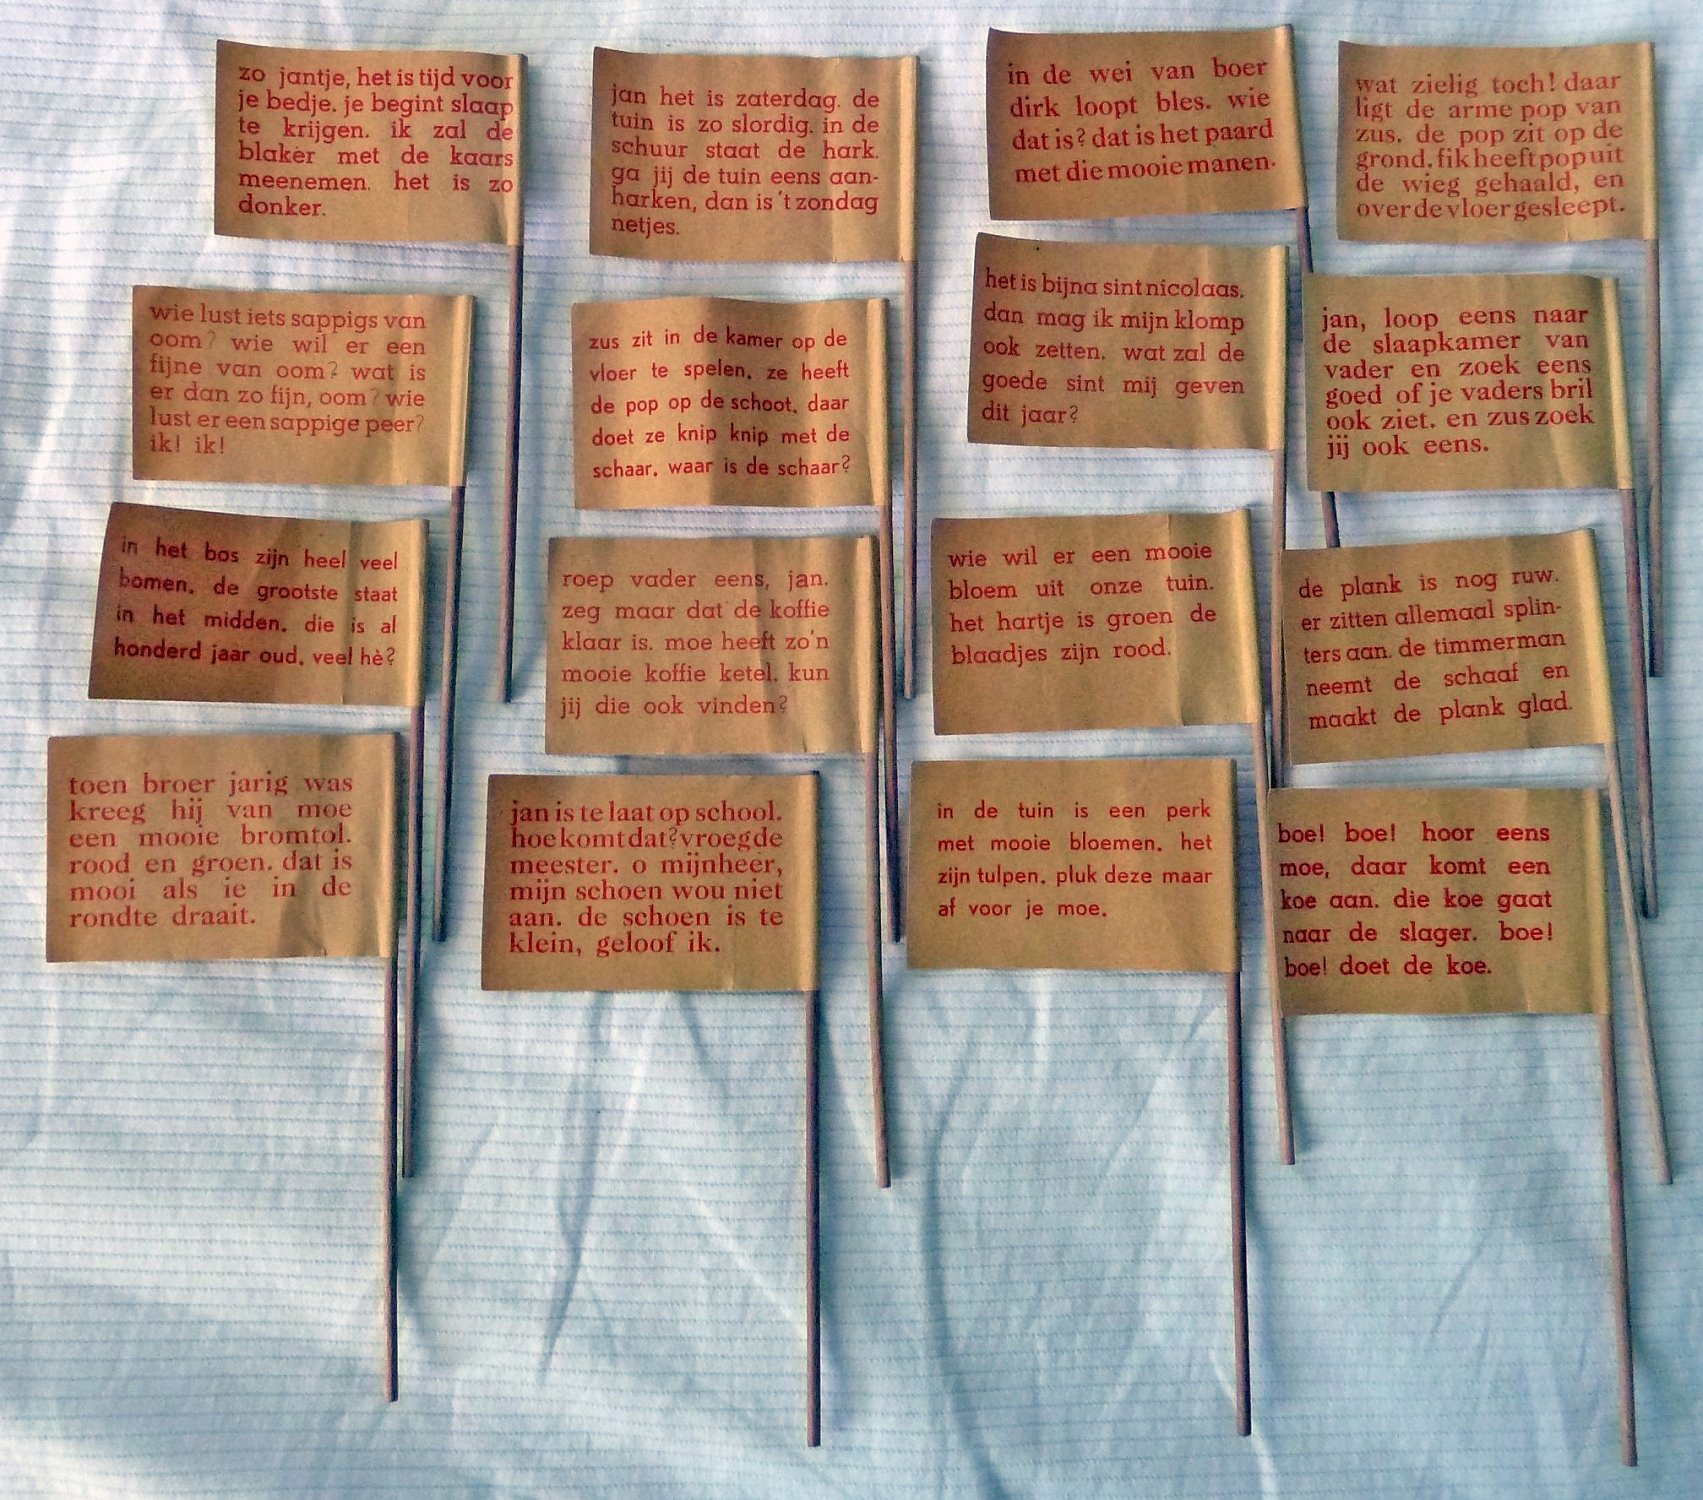 zo jantje, het is tijd voor
je bedje. je begint slaap
te krijgen. ik zal de
blaker met de kaars
meenemen. het is zo
donker.
jan het is zaterdag. de
tuin is zo slordig. in de
schuur staat de hark.
ga jij de tuin eens aan-
harken, dan is 't zondag
netjes.
in de wei van boer
dirk loopt bles. wie
dat is? dat is het paard
met die mooie manen.
wat zielig toch! daar
ligt de arme pop van
zus. de pop zit op de
grond. fik heeft pop uit
de wieg gehaald, en
over de vloer gesleept.
wie lust iets sappigs van
oom? wie wil er een
fijne van oom? wat is
er dan zo fijn, oom? wie
lust er een sappige peer?
ik! ik!
zus zit in de kamer op de
vloer te spelen. ze heeft
de pop op de schoot. daar
doet ze knip knip met de
schaar. waar is de schaar?
het is bijna sint nicolaas.
dan mag ik mijn klomp
ook zetten. wat zal de
goede sint mij geven
dit jaar?
jan, loop eens naar
de slaapkamer van
vader en zoek eens
goed of je vaders bril
ook ziet. en zus zoek
jij ook eens.
in het bos zijn heel veel
bomen. de grootste staat
in het midden. die is al
honderd jaar oud. veel hè?
roep vader eens, jan.
zeg maar dat de koffie
klaar is. moe heeft zo'n
mooie koffie ketel. kun
jij die ook vinden?
wie wil er een mooie
bloem uit onze tuin.
het hartje is groen de
blaadjes zijn rood.
de plank is nog ruw.
er zitten allemaal splin-
ters aan. de timmerman
neemt de schaaf en
maakt de plank glad.
toen broer jarig was
kreeg hij van moe
een mooie bromtol.
rood en groen. dat is
mooi als ie in de
rondte draait.
jan is te laat op school.
hoe komt dat? vroeg de
meester. o mijnheer,
mijn schoen wou niet
aan. de schoen is te
klein, geloof ik.
in de tuin is een perk
met mooie bloemen. het
zijn tulpen. pluk deze maar
af voor je moe.
boe! boe! hoor eens
moe, daar komt een
koe aan. die koe gaat
naar de slager. boe!
boe! doet de koe.